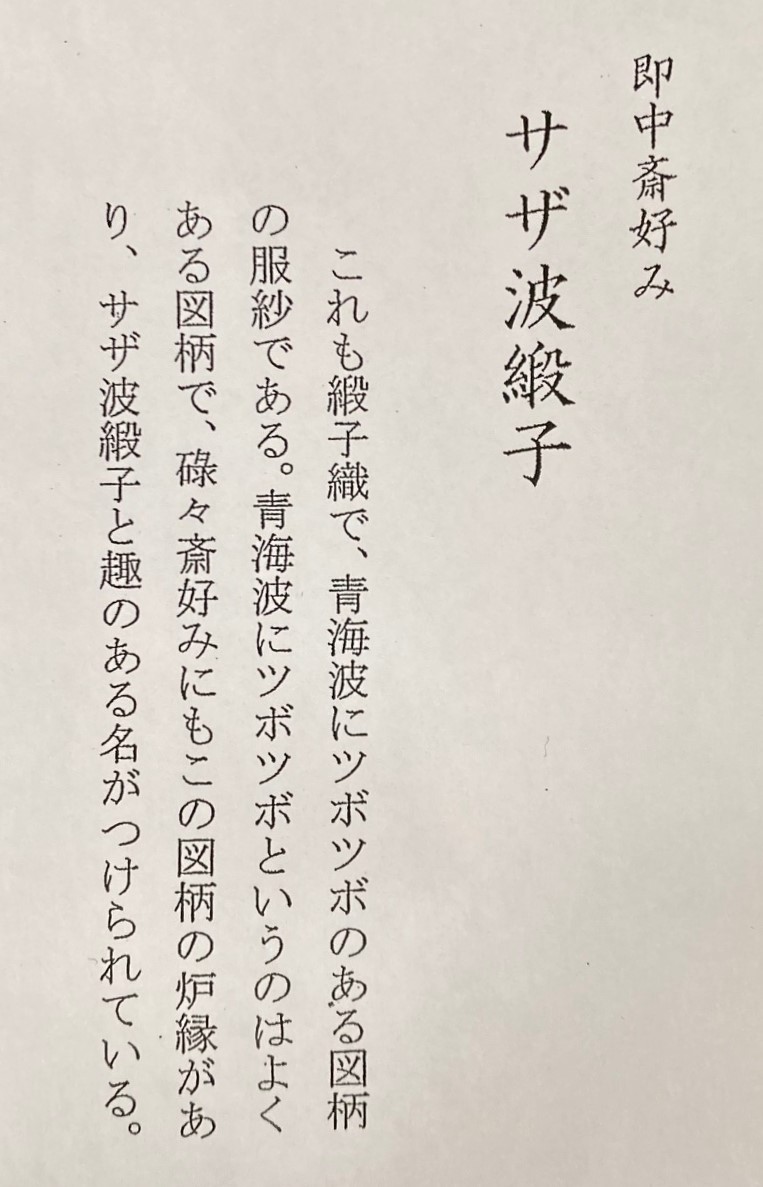 即中斎好み
サザ波緞子
これも緞子織で、青海波にツボツボのある図柄
の服紗である。青海波にツボツボというのはよく
ある図柄で、碌々斎好みにもこの図柄の炉縁があ
り、サザ波緞子と趣のある名がつけられている。